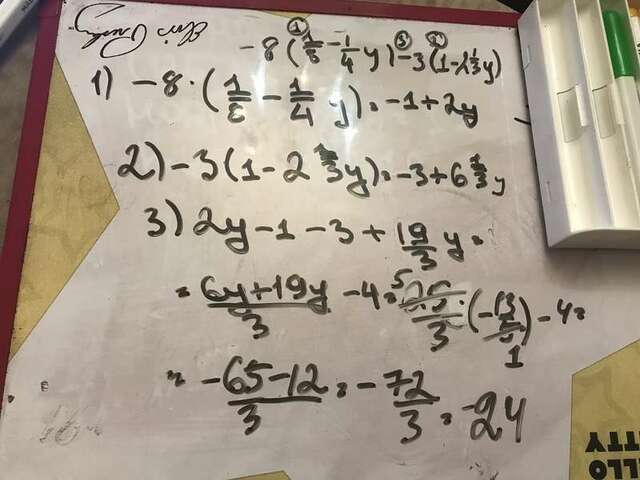 -8(1/8 - 1/4 y) - 3(1 - 2 1/3 y)
1) -8 · (1/8 - 1/4 y) = -1 + 2y
2) -3(1 - 2 1/3 y) = -3 + 6 1/3 y
3) 2y - 1 - 3 + 19/3 y =
= (6y + 19y)/3 - 4 = 25/3 · (-13/5) - 4 =
= (-65 - 12)/3 = -72/3 = -24
LLO
TTY